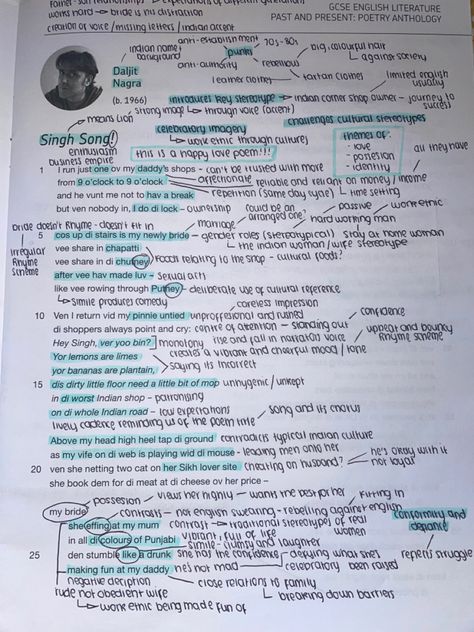 father-son relationships → expectations of different generations
works hard → bride is his distraction
creation of voice / missing letters / indian accent
GCSE ENGLISH LITERATURE
PAST AND PRESENT: POETRY ANTHOLOGY
anti-establishment
70's-80s
indian name + background
punk
big, colourful hair
against society
anti-authority
rebellious
leather clothes
tartan clothes
Daljit
Nagra
(b. 1966)
limited english usually
introduces key stereotype → indian corner shop owner - journey to success
strong image → through voice (accent)
means Lion
challenges cultural stereotypes
Singh Song!
celebratory imagery
work ethnic through cultures
enthusiasm
business empire
this is a happy love poem!!!
themes of:
• love
• possesion
• identity
all they have
1 I run just one ov my daddy's shops - can't be trusted with more
affectionate
from 9 o'clock to 9 o'clock reliable and reliant on money / income
and he vunt me not to hav a break repetition (same day cycle) time setting
but ven nobody in, I do di lock - ownership
could be an arranged one?
passive
work ethic
marriage
hard working man
bride doesn't fit in
Rhyme - doesn't fit in
5 cos up di stairs is my newly bride - gender roles (stereotypical) stay at home woman
the indian woman/wife stereotype
irregular Rhyme scheme
vee share in chapatti
vee share in di chutney foods relating to the shop - cultural foods?
after vee hav made luv - sexual arts
like vee rowing through Putney - deliberate use of cultural reference
simile produces comedy
careless impression
10 Ven I return vid my pinnie untied unproffesional and rushed
confidence
di shoppers always point and cry: centre of attention - standing out
upbeat and bouncy Rhyme scheme
Hey Singh, ver yoo bin? monotony rise and fall in narrators voice
creates a vibrant and cheerful mood / tone
Yor lemons are limes
yor bananas are plantain, saying its incorrect
15 dis dirty little floor need a little bit of mop unhygenic / unkept
in di worst Indian shop - patronising
on di whole Indian road - low expectations
song and its chorus
lively cadence reminding us of the poem title
Above my head high heel tap di ground contradicts typical indian culture
as my vife on di web is playing wid di mouse - leading men onto her
he's okay with it
20 ven she netting two cat on her Sikh lover site cheating on husband?
not loyal
she book dem for di meat at di cheese ov her price –
possesion
views her highly - wants the best for her
fitting in
my bride
contrasts - not english swearing - rebelling against english
conformity and defiance
she effing at my mum contrast → traditional stereotypes of real women
vibrant, full of life
in all di colours of Punjabi
simile - clumsy and laughter
25 den stumble like a drunk she has the confidence
defying what she's celebratory been raised
repeats struggle
making fun at my daddy he's not mad
negative deception
close relations to family
rude not obedient wife
breaking down barriers
work ethic being made fun of